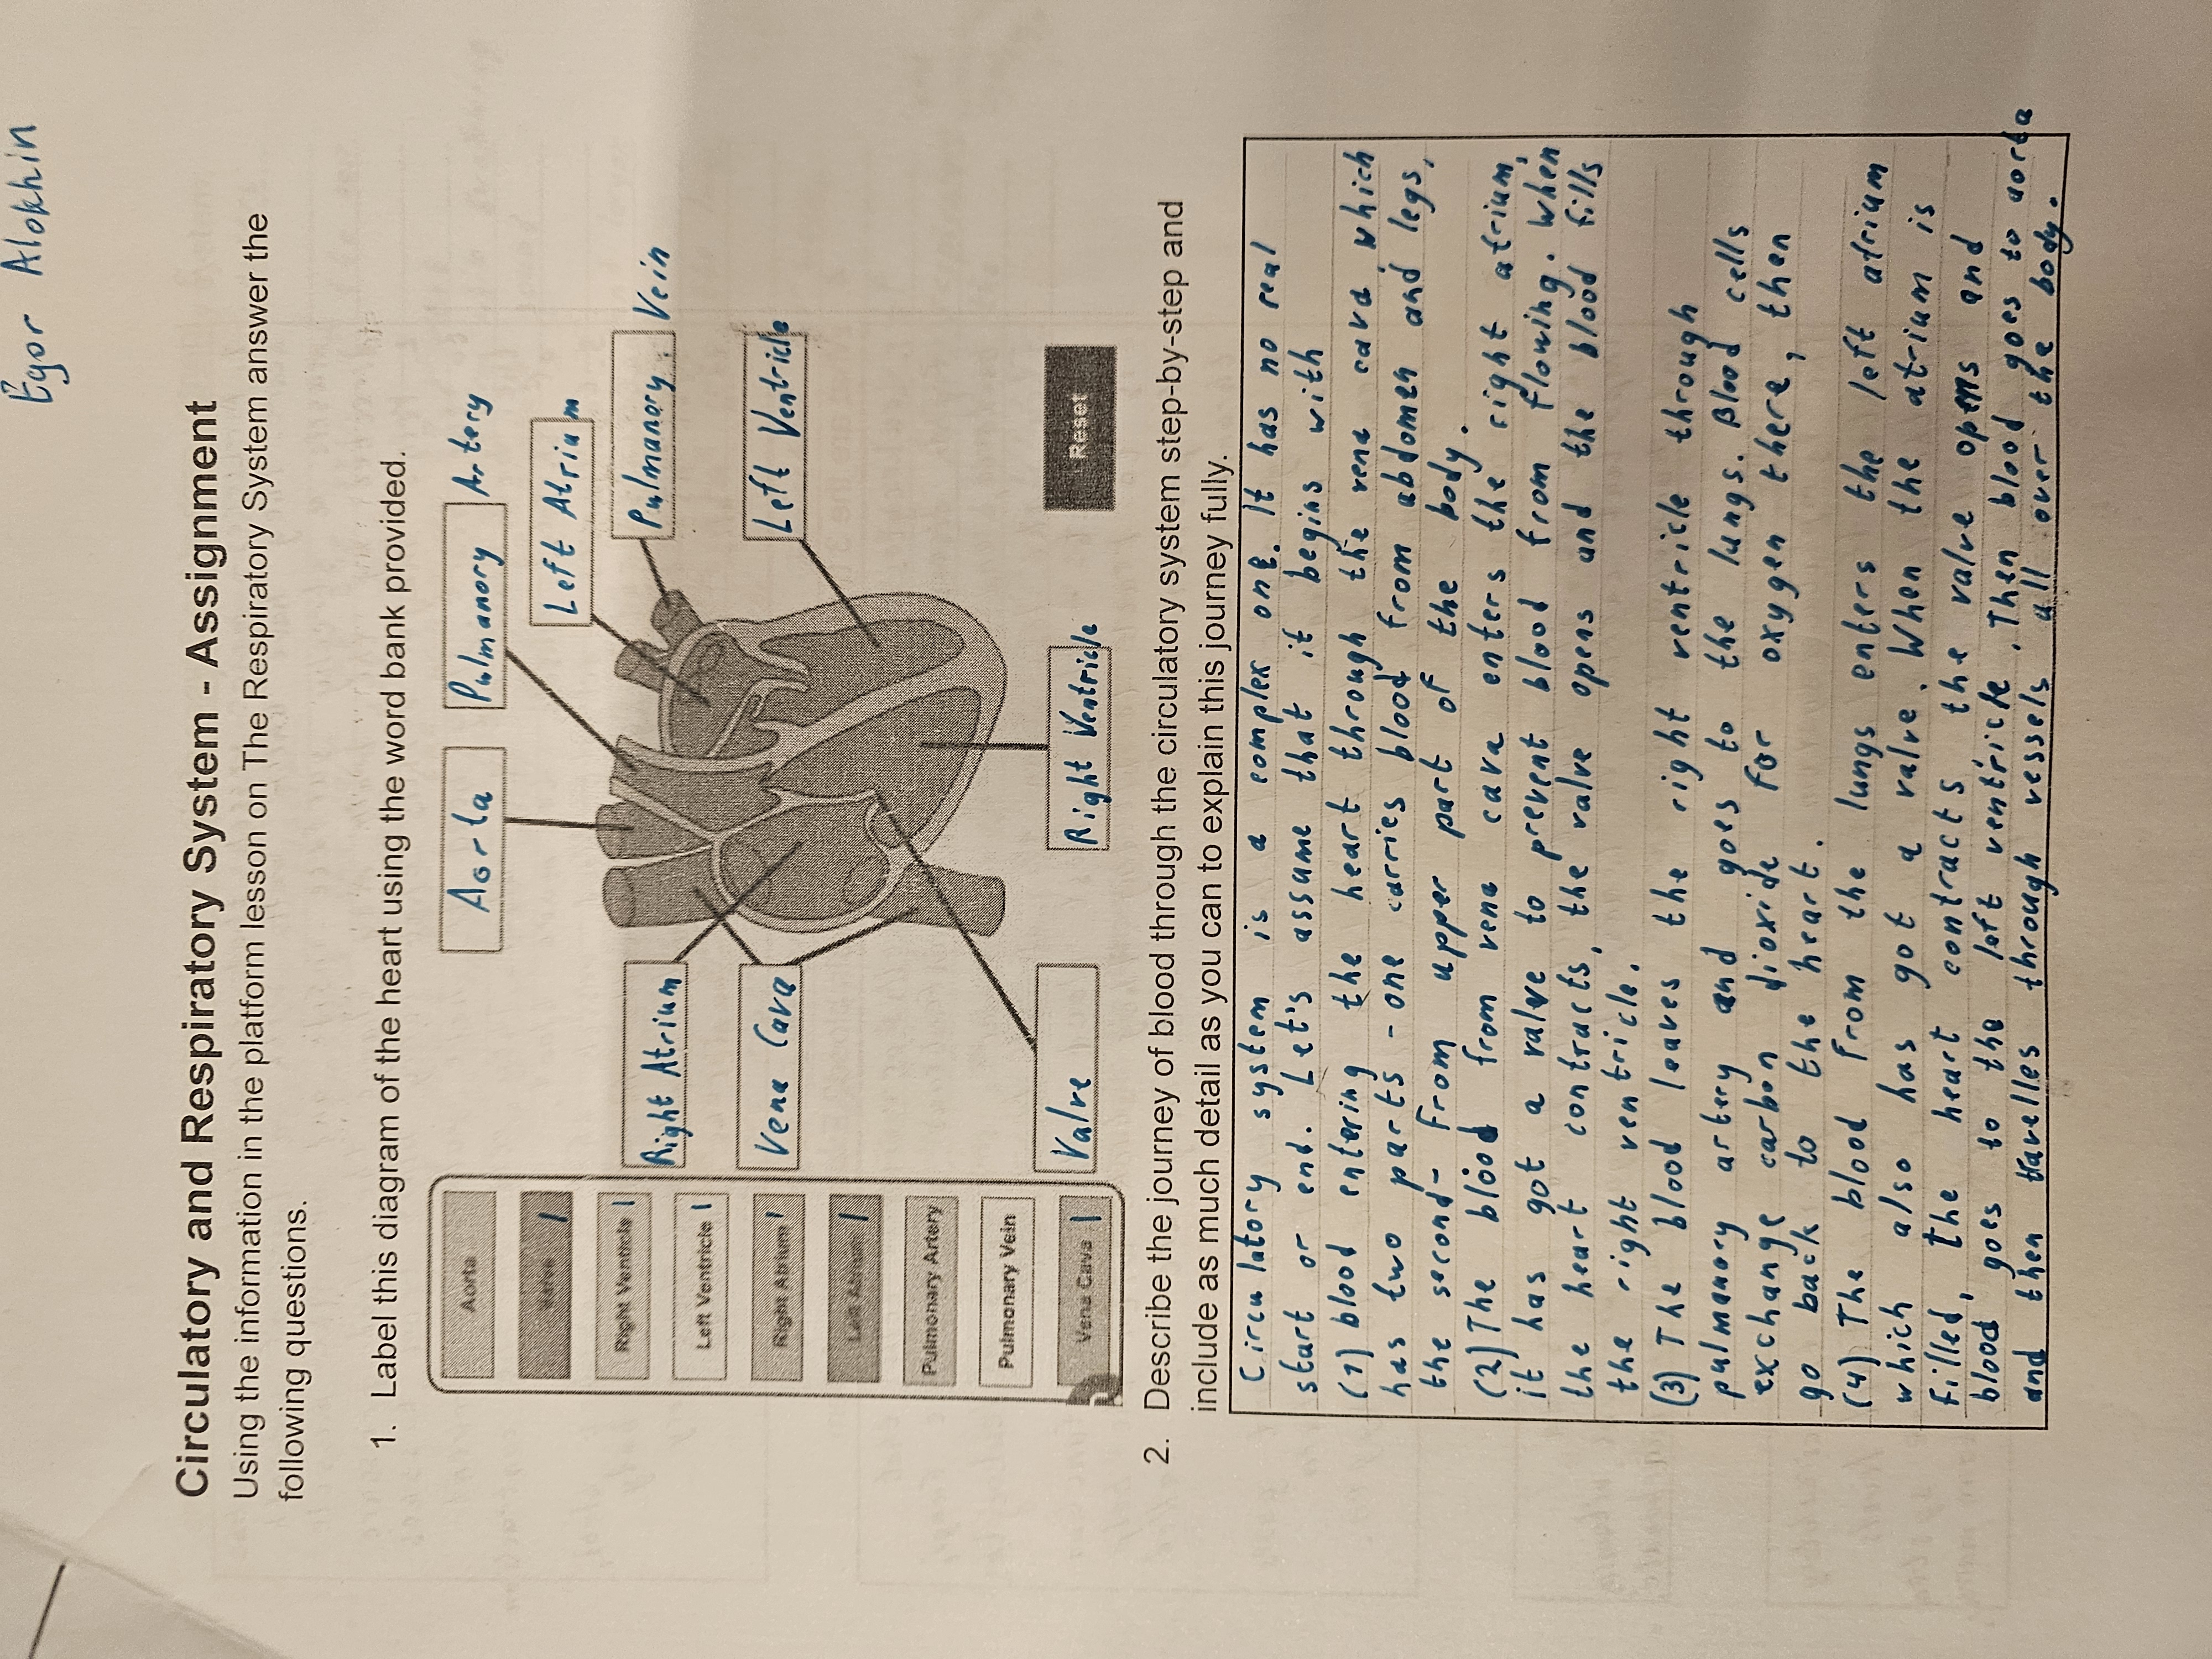 Egor Alokhin
Circulatory and Respiratory System - Assignment
Using the information in the platform lesson on The Respiratory System answer the
following questions.
1. Label this diagram of the heart using the word bank provided.
Aorta
Valve
Right Ventricle
Left Ventricle
Right Atrium
Left Atrium
Pulmonary Artery
Pulmonary Vein
Vena Cava
Aorta
Pulmanory Artery
Left Atrium
Right Atrium
Pulmanory Vein
Vena Cava
Left Ventricle
Valve
Right Ventricle
Reset
2. Describe the journey of blood through the circulatory system step-by-step and
include as much detail as you can to explain this journey fully.
Circulatory system is a complex one. It has no real
start or end. Let's assume that it begins with
(1) blood entering the heart through the vena cava, which
has two parts - one carries blood from abdomen and legs,
the second - from upper part of the body.
(2) The blood from vena cava enters the right atrium,
it has got a valve to prevent blood from flowing. When
the heart contracts, the valve opens and the blood fills
the right ventricle.
(3) The blood leaves the right ventricle through
pulmanory artery and goes to the lungs. Blood cells
exchange carbon dioxide for oxygen there, then
go back to the heart.
(4) The blood from the lungs enters the left atrium
which also has got a valve. When the atrium is
filled, the heart contracts, the valve opens and
blood goes to the left ventricle. Then blood goes to aorta
and then travelles through vessels all over the body.